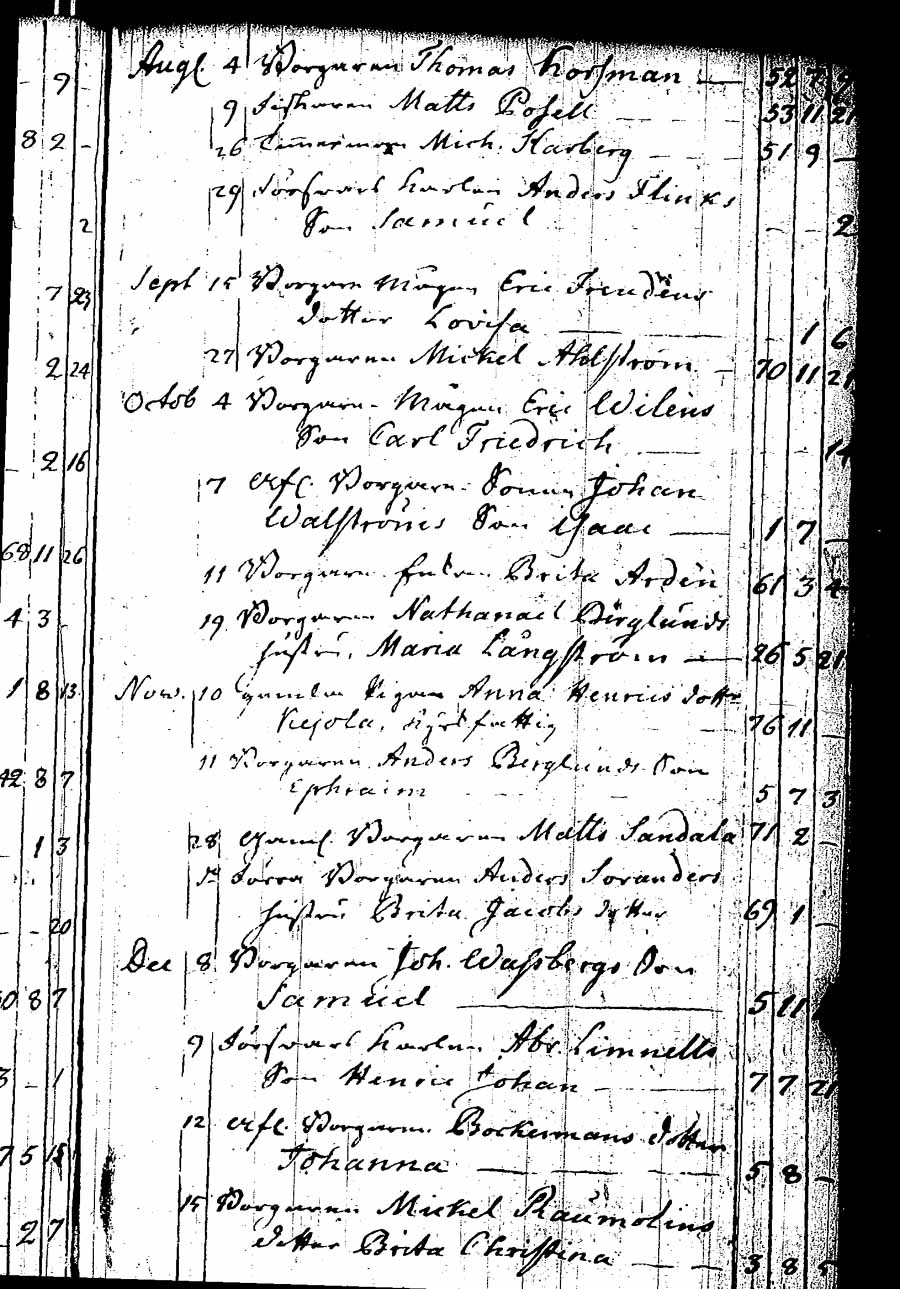 9 Augl. 4 Borgaren Thomas Korssman — 52 7 9
9 Fiskaren Matts Posell — 53 11 21
8 2 - 26 Timmerman Mich. Karberg — 51 9 —
29 Försvars Karlen Anders Flinks
2 Son Samuel — 2
7 23 Sept 15 Borgare Mågen Eric Frendens
dotter Lovisa — 1 6
2 24 27 Borgaren Mickel Ahlström — 70 11 21
Octob 4 Borgare Mågen Eric Wilens
2 16 Son Carl Friedrich — 14
7 Afl. Borgare Sonen Johan
Walströms Son Isaac — 1 7 —
68 11 26 11 Borgare Enkan Brita Ardin 61 3 4
4 3 - 19 Borgaren Nathanael Berglunds
hustru, Maria Långström — 26 5 21
1 8 13 Nov. 10 gamla Pigan Anna Henrics dottr
Kejola, kyrkfattig — 76 11 —
42 8 7 11 Borgaren Anders Berglunds Son
Ephraim 5 7 3
- 1 3 28 Gaml. Borgaren Matts Sandala 71 2 —
dn Förra Borgaren Anders Soranders
- - 20 hustru Brita Jacobs dotter 69 1 —
Dec 8 Borgaren Joh. Wassbergs Son
50 8 7 Samuel — 5 11
9 Försvars Karlen Abr. Limnells
3 - 1 Son Henric Johan — 7 7 21
12 Afl. Borgaren Bockermans dotter
7 5 15 Johanna — 5 8 —
15 Borgaren Mickel Raumolins
- 2 7 dotter Brita Christina — 3 8 5